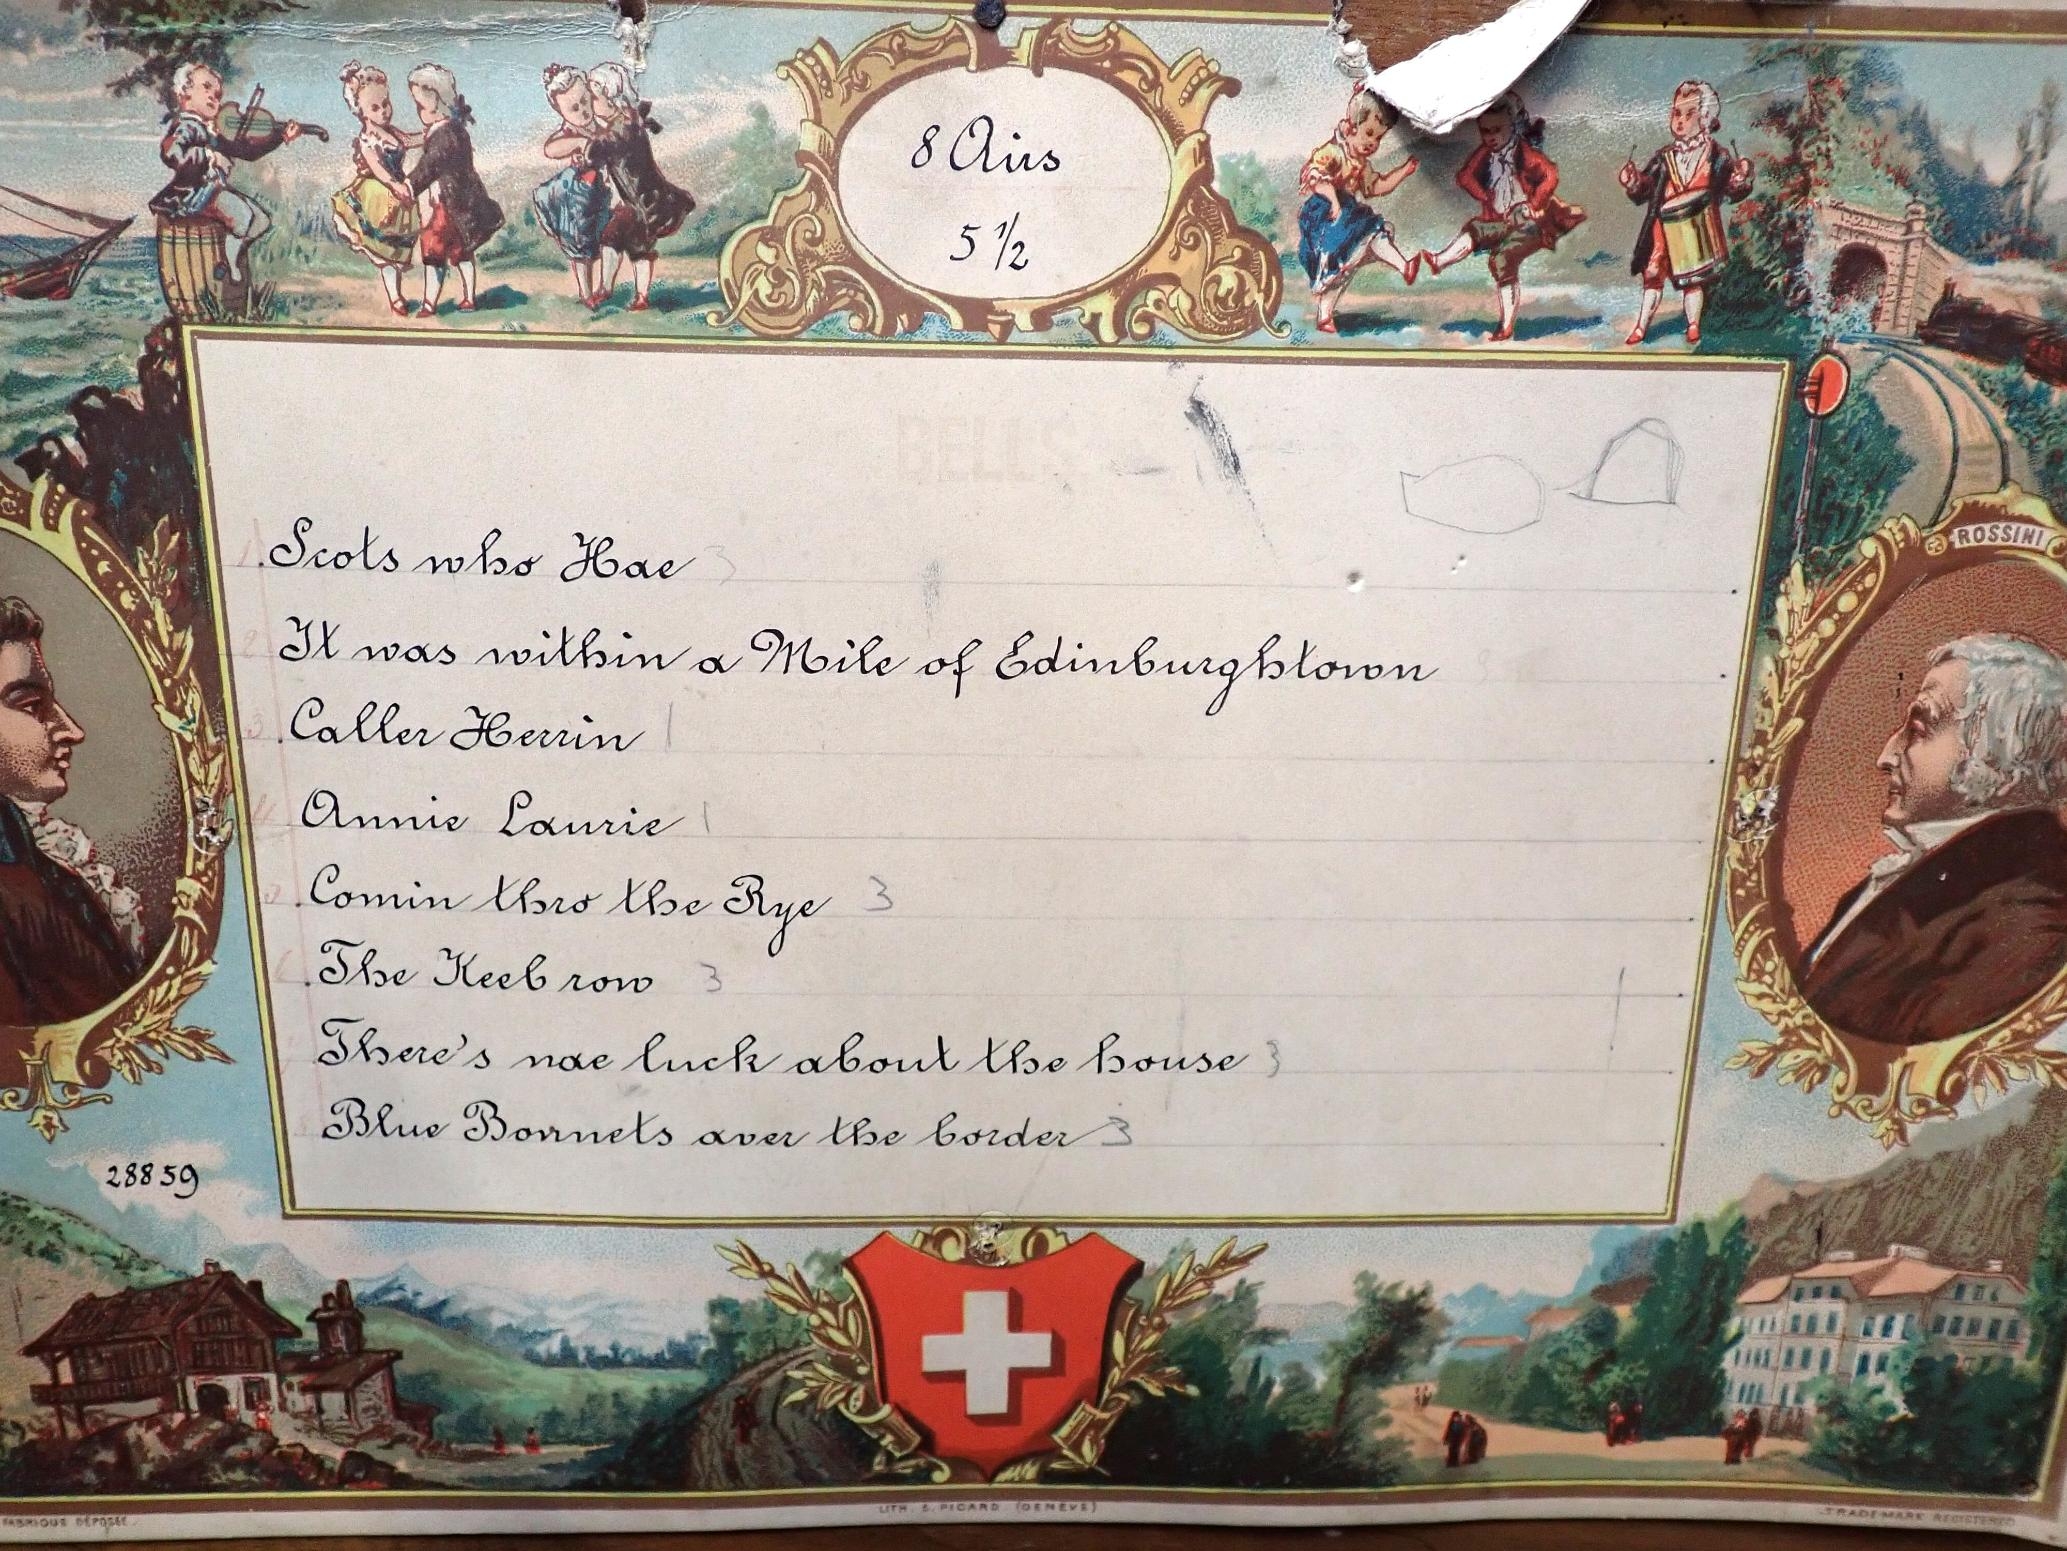 8 Airs
5 1/2
BELLS
1. Scots who Hae 3
2 It was within a Mile of Edinburghtown
3. Caller Herrin 1
4 Annie Laurie 1
5. Comin thro the Rye 3
6. The Keebrow 3
There's nae luck about the house 3
Blue Bonnets aver the border 3
ROSSINI
28859
FABRIQUE DÉPOSÉE.
LITH. S. PICARD (GENÈVE)
TRADE MARK REGISTERED